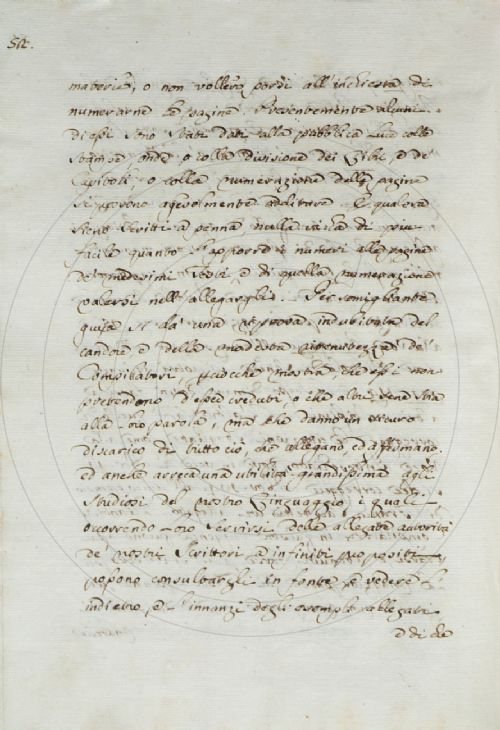 52.
materie, o non vollero porsi all' inchiesta di
numerarne le pagine. Presentemente alcuni
di essi sono stati dati alla pubblica luce colle
stampe onde o colla divisione dei Libri, e de'
Capitoli, o colla numerazione delle pagine
si possono agevolmente additare. E qualora
sieno scritti a penna nulla v'à di più
facile quanto l'apporre i numeri alle pagine
de' medesimi testi e di quella numerazione
valersi nell' allegargli. Per somigliante
guisa si dà una riprova indubitata del
candore e della madrelta de'
Compilatori giacche mostra, che essi non
pretendono d'esser creduti o che altri sene stia
alla loro parola, ma che danno un sicuro
discarico di tutto ciò, che allegano, ed affermano.
ed anche arreca una utilità grandissima agli
Studiosi del nostro Linguaggio i quali
occorrendo loro servirsi delle allegate autorità
de' nostri Scrittori a infiniti propositi
possono consultargli in fonte e vedere l'
indietro e l'innanzi degli esempli allegati
e di che